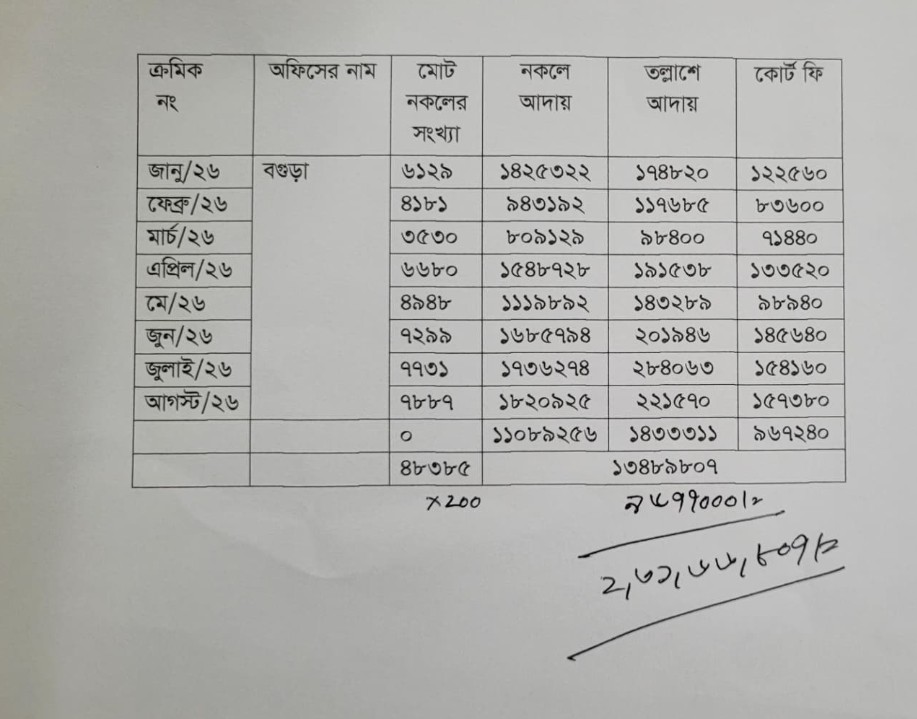 ক্রমিক নং অফিসের নাম মোট নকলের সংখ্যা নকলে আদায় তল্লাশে আদায় কোর্ট ফি
জানু/২৬ বগুড়া ৬১২৯ ১৪২৫৩২২ ১৭৪৮২০ ১২২৫৬০
ফেব্রু/২৬ ৪১৮১ ৯৪৩১৯২ ১১৭৬৮৫ ৮৩৬০০
মার্চ/২৬ ৩৫৩০ ৮০৯১২৯ ৯৮৪০০ ৭১৪৪০
এপ্রিল/২৬ ৬৬৮০ ১৫৪৮৭২৮ ১৯১৫৩৮ ১৩৩৫২০
মে/২৬ ৪৯৪৮ ১১১৯৮৯২ ১৪৩২৮৯ ৯৮৯৪০
জুন/২৬ ৭২৯৯ ১৬৮৫৭৯৪ ২০১৯৪৬ ১৪৫৬৪০
জুলাই/২৬ ৭৭৩১ ১৭৩৬২৭৪ ২৮৪০৬৩ ১৫৪১৬০
আগস্ট/২৬ ৭৮৮৭ ১৮২০৯২৫ ২২১৫৭০ ১৫৭৩৮০
০ ১১০৮৯২৫৬ ১৪৩৩৩১১ ৯৬৭২৪০
৪৮৩৮৫ ১৩৪৮৯৮০৭
×২০০ ৯৬৭৭০০০/=
২,৩১,৬৬,৮০৭/=